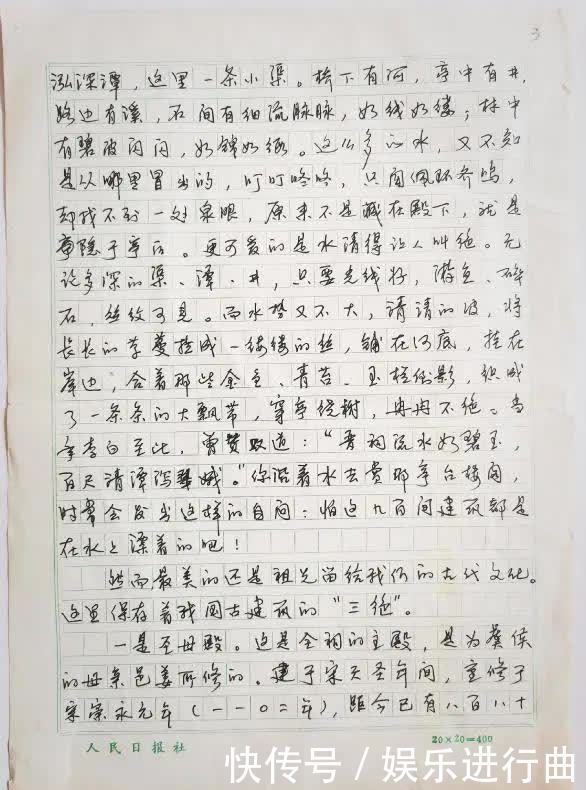 3
泓深潭，这里一条小渠。桥下有河，亭中有井，
路边有溪，石间有细流脉脉，如线如缕；林中
有碧波闪闪，如锦如缎。这么多的水，又不知
是从哪里冒出的，叮叮咚咚，只闻佩环齐鸣，
却找不到一处泉眼，原来不是藏在殿下，就是
隐于亭后。更可爱的是水清得让人叫绝。无
论多深的渠、潭、井，只要光线好，游鱼、碎
石，丝纹可见。而水势又不大，清清的波，将
长长的草蔓拉成一缕缕的丝，铺在河底，挂在
岸边，合着那些金鱼、青苔、玉栏倒影，织成
了一条条的大飘带，穿亭绕榭，冉冉不绝。当
年李白至此，曾赞叹道："晋祠流水如碧玉，
百尺清潭泻翠娥。"你沿着水去赏那亭台楼阁，
时常会发出这样的自问：怕这几百间建筑都是
在水上漂着的吧！
然而最美的还是祖先留给我们的古代文化。
这里保存着我国古建筑的"三绝"。
一是圣母殿。这是全祠的主殿，是为虞侯
的母亲邑姜所修的。建于宋天圣年间，重修于
宋崇永元年（一一〇二年），距今已有八百八十
人民日报社
20×20=400
快传号／娱乐进行曲